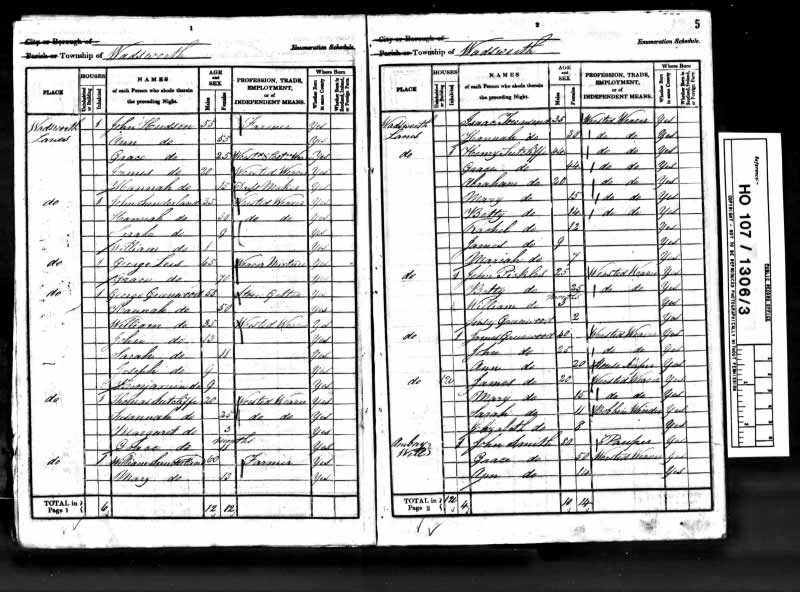 1
City or Borough of
Parish or Township of Wadsworth
Enumeration Schedule.
PLACE
HOUSES
Uninhabited or Building
Inhabited
NAMES
of each Person who abode therein the preceding Night.
AGE and SEX
Males
Females
PROFESSION, TRADE, EMPLOYMENT, or of INDEPENDENT MEANS.
Where Born
Whether Born in same County
Whether Born in Scotland, Ireland, or Foreign Parts.
Wadsworth Lanes 1 John Hudson 55 Farmer Yes
Ann do 55 Yes
Grace do 25 Yes
James do 20 Worsted Weaver Yes
Hannah do 15 Dress Maker Yes
do 1 John Sunderland 35 Worsted Weaver Yes
Hannah do 30 do do Yes
Sarah do 9 Yes
William do 1 Yes
do 1 George Lees 65 Yes
Grace do 70
do 1 George Greenwood 55 Yes
Hannah do 50 Yes
William do 25 Worsted Weaver Yes
John do 13 Yes
Sarah do 11 Yes
Joseph do 9 Yes
Benjamin do 9 Yes
do 1 Thomas Sutcliffe 20 Worsted Weaver Yes
Susannah do 25 do do Yes
Margaret do 3 Yes
Grace do months Yes
do 1 William Sunderland 60 Farmer Yes
Mary do 13 Yes
TOTAL in Page 1 6 12 12
2
5
City or Borough of
Parish or Township of Wadsworth
Enumeration Schedule.
PLACE
HOUSES
Uninhabited or Building
Inhabited
NAMES
of each Person who abode therein the preceding Night.
AGE and SEX
Males
Females
PROFESSION, TRADE, EMPLOYMENT, or of INDEPENDENT MEANS.
Where Born
Whether Born in same County
Whether Born in Scotland, Ireland, or Foreign Parts.
Wadsworth Lanes Isaac 35 Worsted Weaver Yes
Hannah do 30 do do Yes
do 1 Henry Sutcliffe 44 do do Yes
Grace do 44 do do Yes
Abraham do 20 do do Yes
Mary do 15 do do Yes
Betty do 14 do do Yes
Rachel do 12 Yes
James do 9 Yes
Mariah do 7 Yes
do 1 John Pickles 25 Worsted Weaver Yes
Betty do 25 do do Yes
William do months 3 Yes
Greenwood 2 Yes
do 1 James Greenwood 40 Worsted Weaver Yes
John do 25 do do Yes
Ann do 20 House Keeper Yes
do James do 20 Worsted Weaver Yes
Mary do 15 do do Yes
Sarah do 11 Bobbin Winder Yes
do 8 Yes
1 John Smith 80 Pauper Yes
Grace do 50 Worsted Weaver Yes
Ann do 14 Yes
TOTAL in Page 2 4 10 14
Reference:-
HO 107 / 1306/3
PUBLIC RECORD OFFICE
COPYRIGHT - NOT TO BE REPRODUCED PHOTOGRAPHICALLY WITHOUT PERMISSION